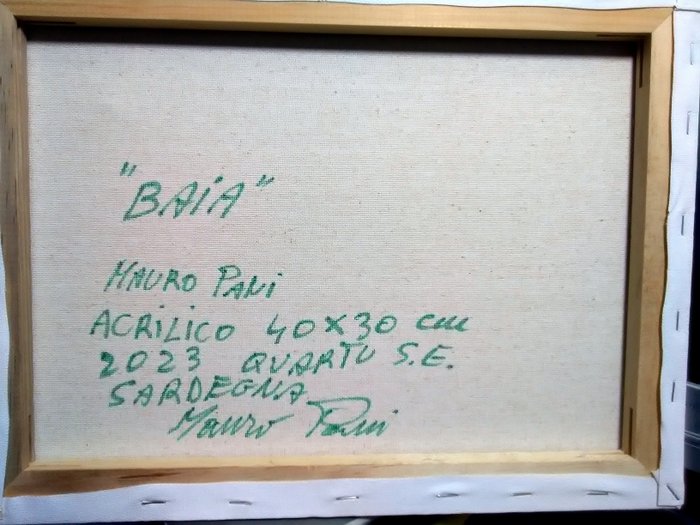 "BAiA"
MAURO PANi
ACRiLiCO 40x30 cm
2023 QUARTU S.E.
SARDEGNA
Mauro Pani